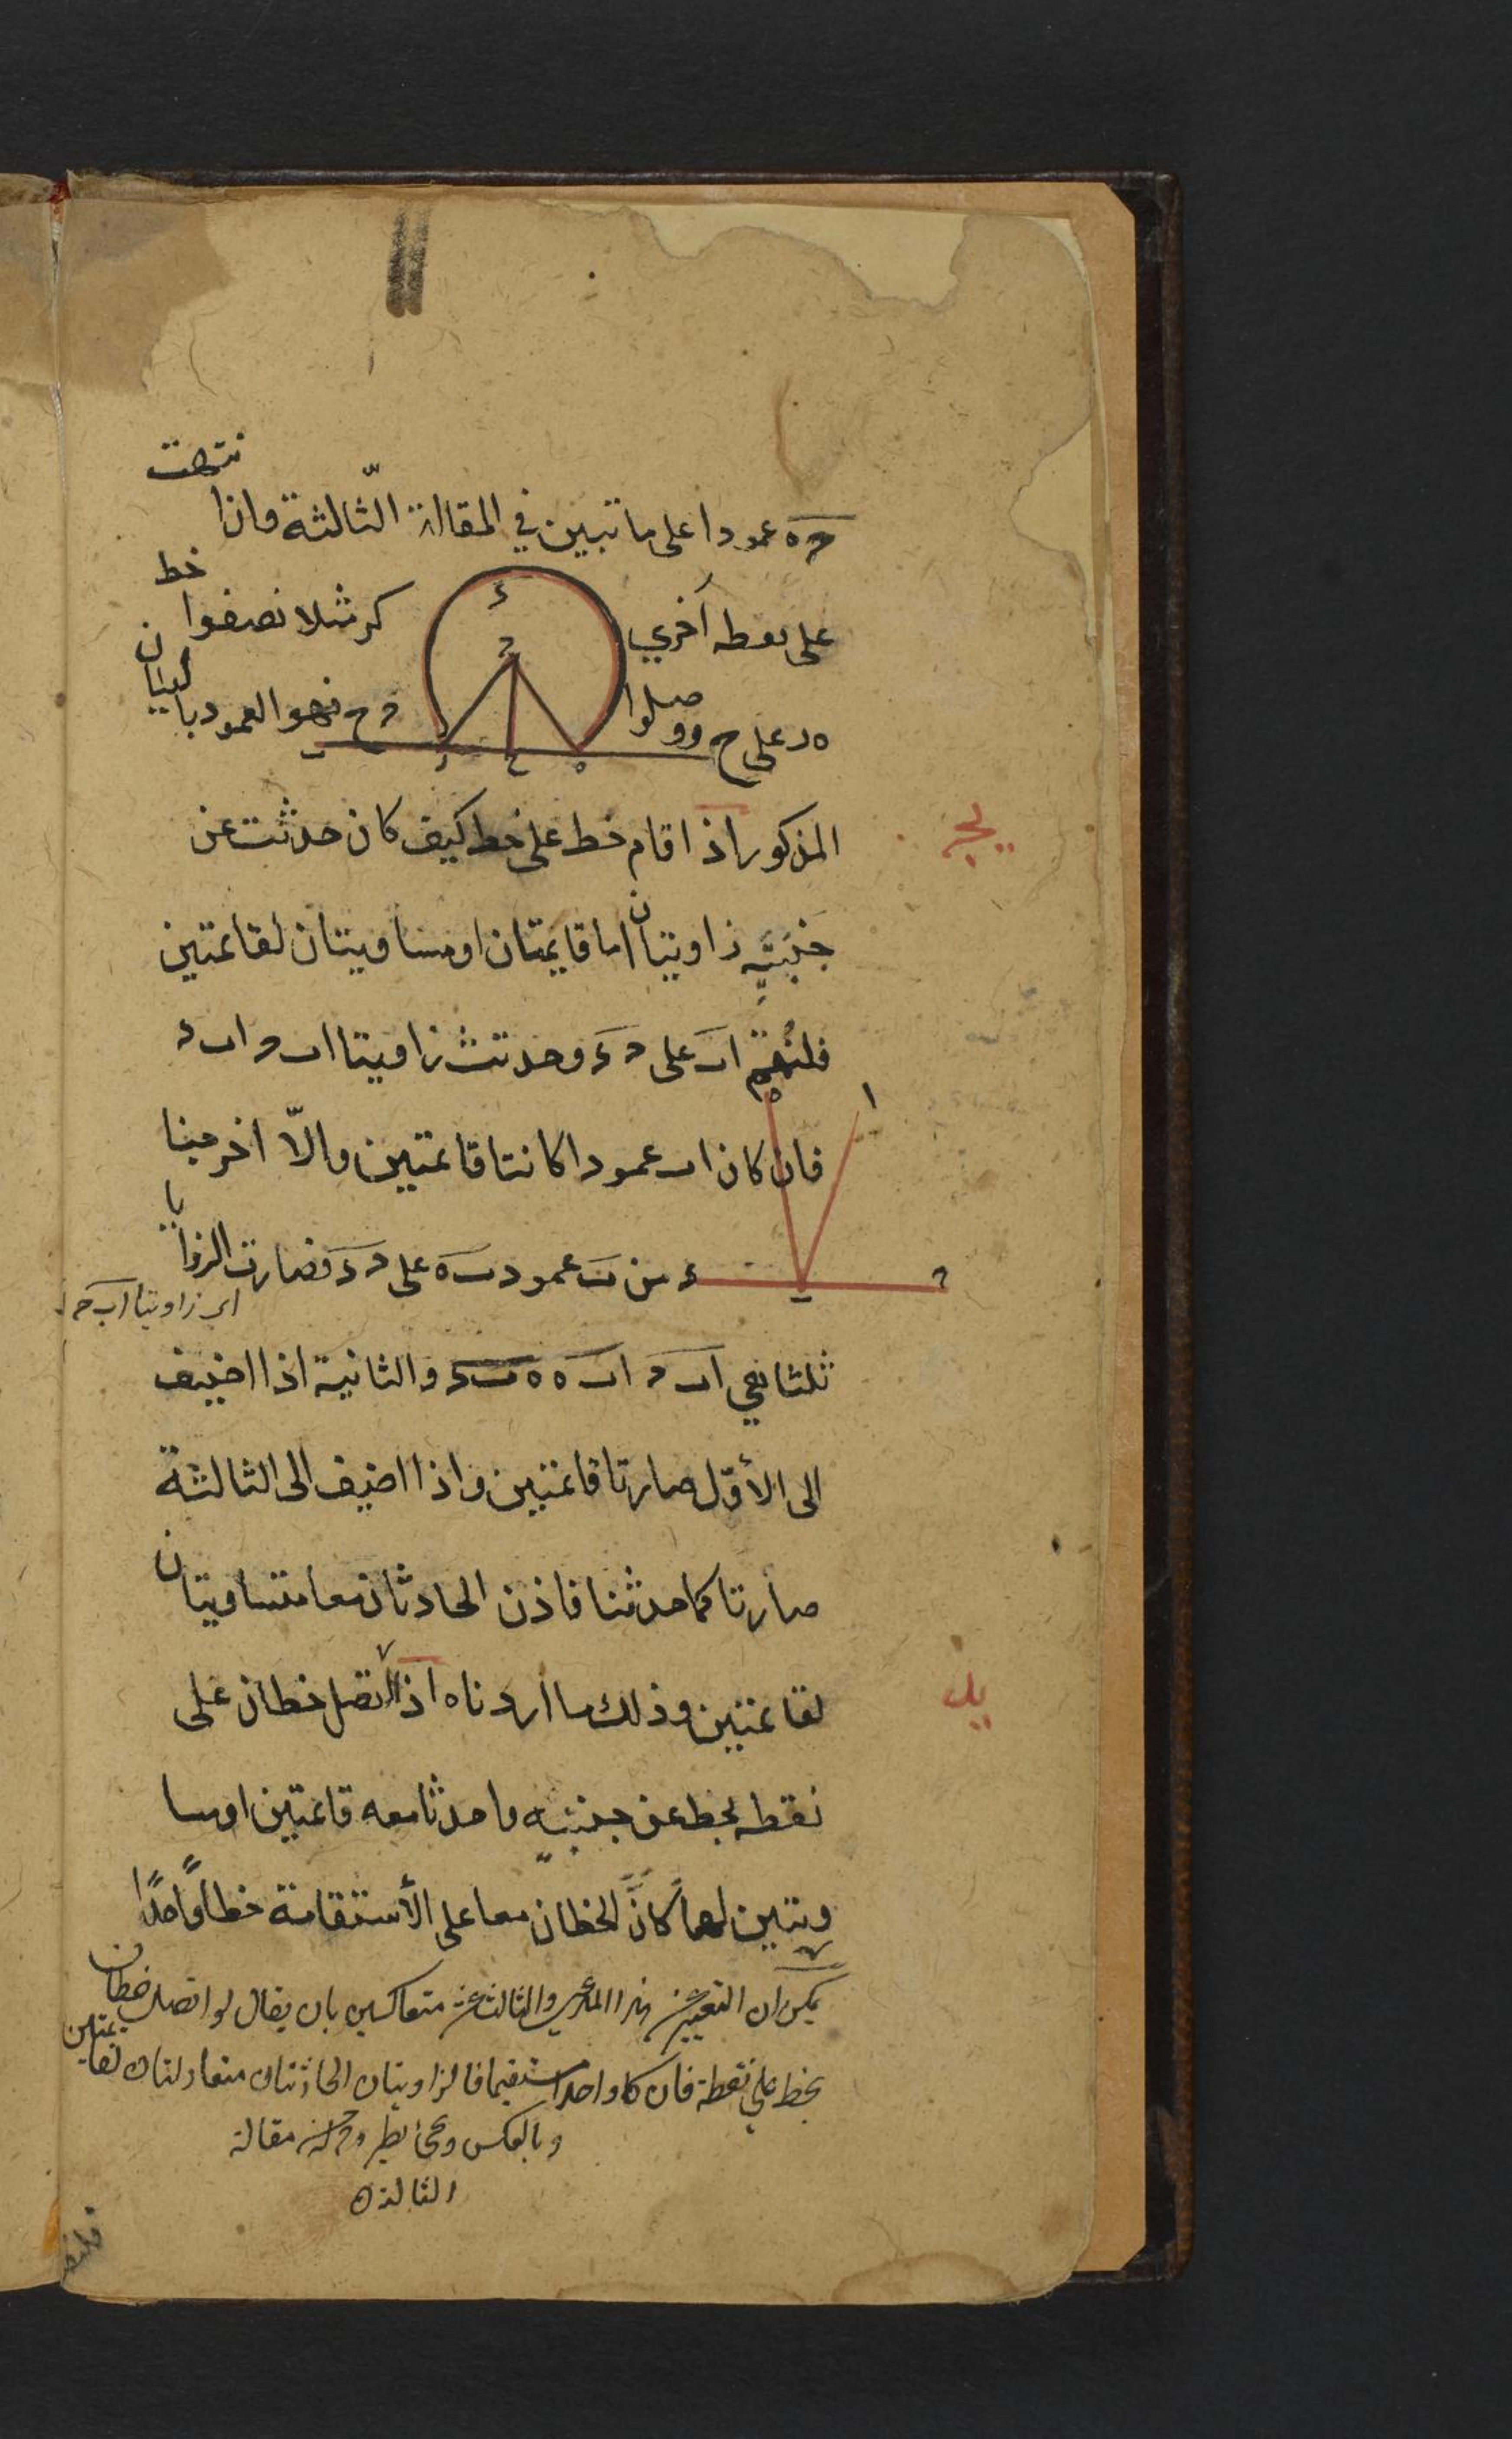 حه عمودا على ما تبين في المقالة الثّالثة وان انتهت
على نقطه أخري كر مثلا نصفوا خط
ه ر على ح ووصلوا ح ح فهو العمود بالبيان
المذكور اذا قام خط على خط كيف كان حدثت عن
يج
جنبتيه زاويتان اما قايمتان او مساويتان لقائمتين
فلنقم اب على ح د وحدثت زاويتا اب ح اب د
فان كان اب عمودا كانتا قائمتين والّا اخرجنا
من ب عمود ب ه على ح د فصارت الزوايا
اى زاويتا اب ح
ثلثا هي اب ح اب ه ه ب د والثانية اذا اضيف
الى الأوّل صارتا قائمتين واذا اضيف الى الثالثة
صارتا كما حدثتا فاذن الحادثتان معا متساويتان
لقائمتين وذلك ما أردناه اذا اتصل خطان على
يد
نقطه بخط عن جنبتيه وحدثتا معه قائمتين او مسا
ويتين لهما كانَ الخطان معا على الأستقامة خطاً واحدًا
يمكن ان التعبير عن هذا المدعى والثالث عشر متعاكسين بان يقال لو اتصل خطان
بخط على نقطة فان كانا واحدا مستقيما فالزاويتان الحادثتان متعادلتان لقايمتين
وبالعكس مقالة
الثالثه